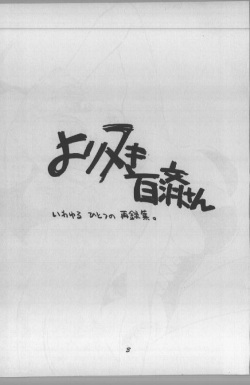 よりヌき
百済さん
いわゆる ひとつの 再録集。
2